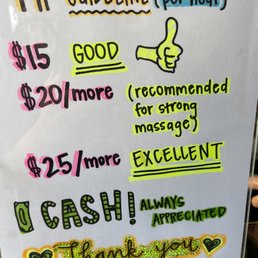 GUIDELINE (per hour)
$15 GOOD
$20/more (recommended
for strong
massage)
$25/more EXCELLENT
CASH! ALWAYS
APPRECIATED
Thank you